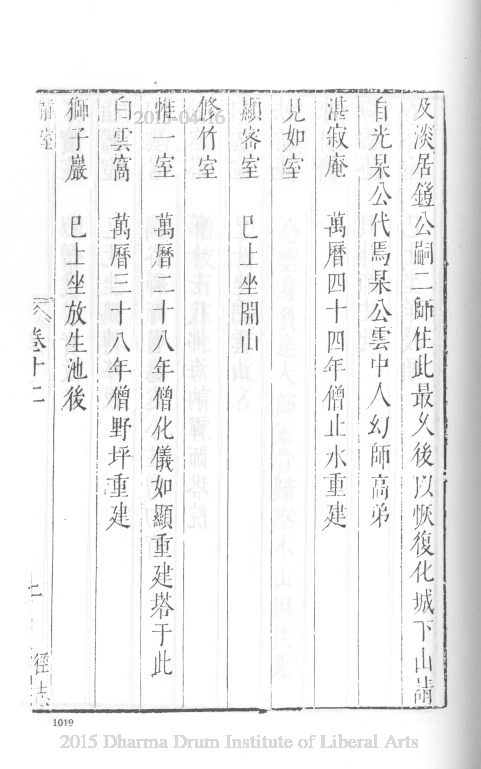 及淡居鎧公嗣二師住此最久後以恢復化城下山請
自光杲公代焉杲公雲中人幻師高弟
湛寂庵 萬曆四十四年僧止水重建
見如室
顯密室 已上坐開山
修竹室
惟一室 萬曆二十八年僧化儀如顯重建塔于此
白雲窩 萬曆三十八年僧野坪重建
獅子巖 已上坐放生池後
室
卷十二
徑志
1019
2015 Dharma Drum Institute of Liberal Arts